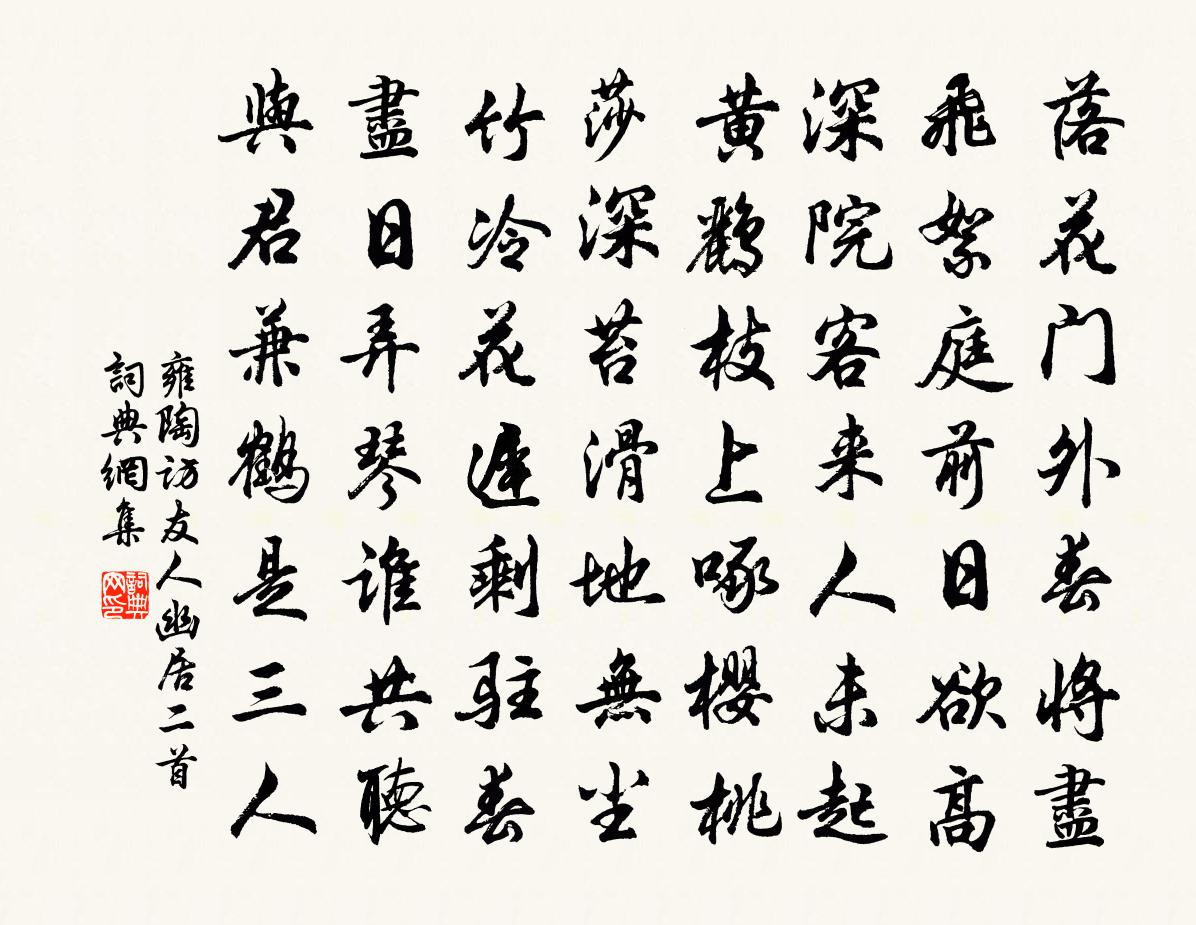 落花门外春将盡
飛絮庭前日欲高
深院客来人未起
黄鸝枝上啄櫻桃
莎深苔滑地無尘
竹冷花遲剩駐春
盡日弄琴谁共聽
與君兼鹤是三人
雍陶访友人幽居二首
詞典網集
詞典
网印